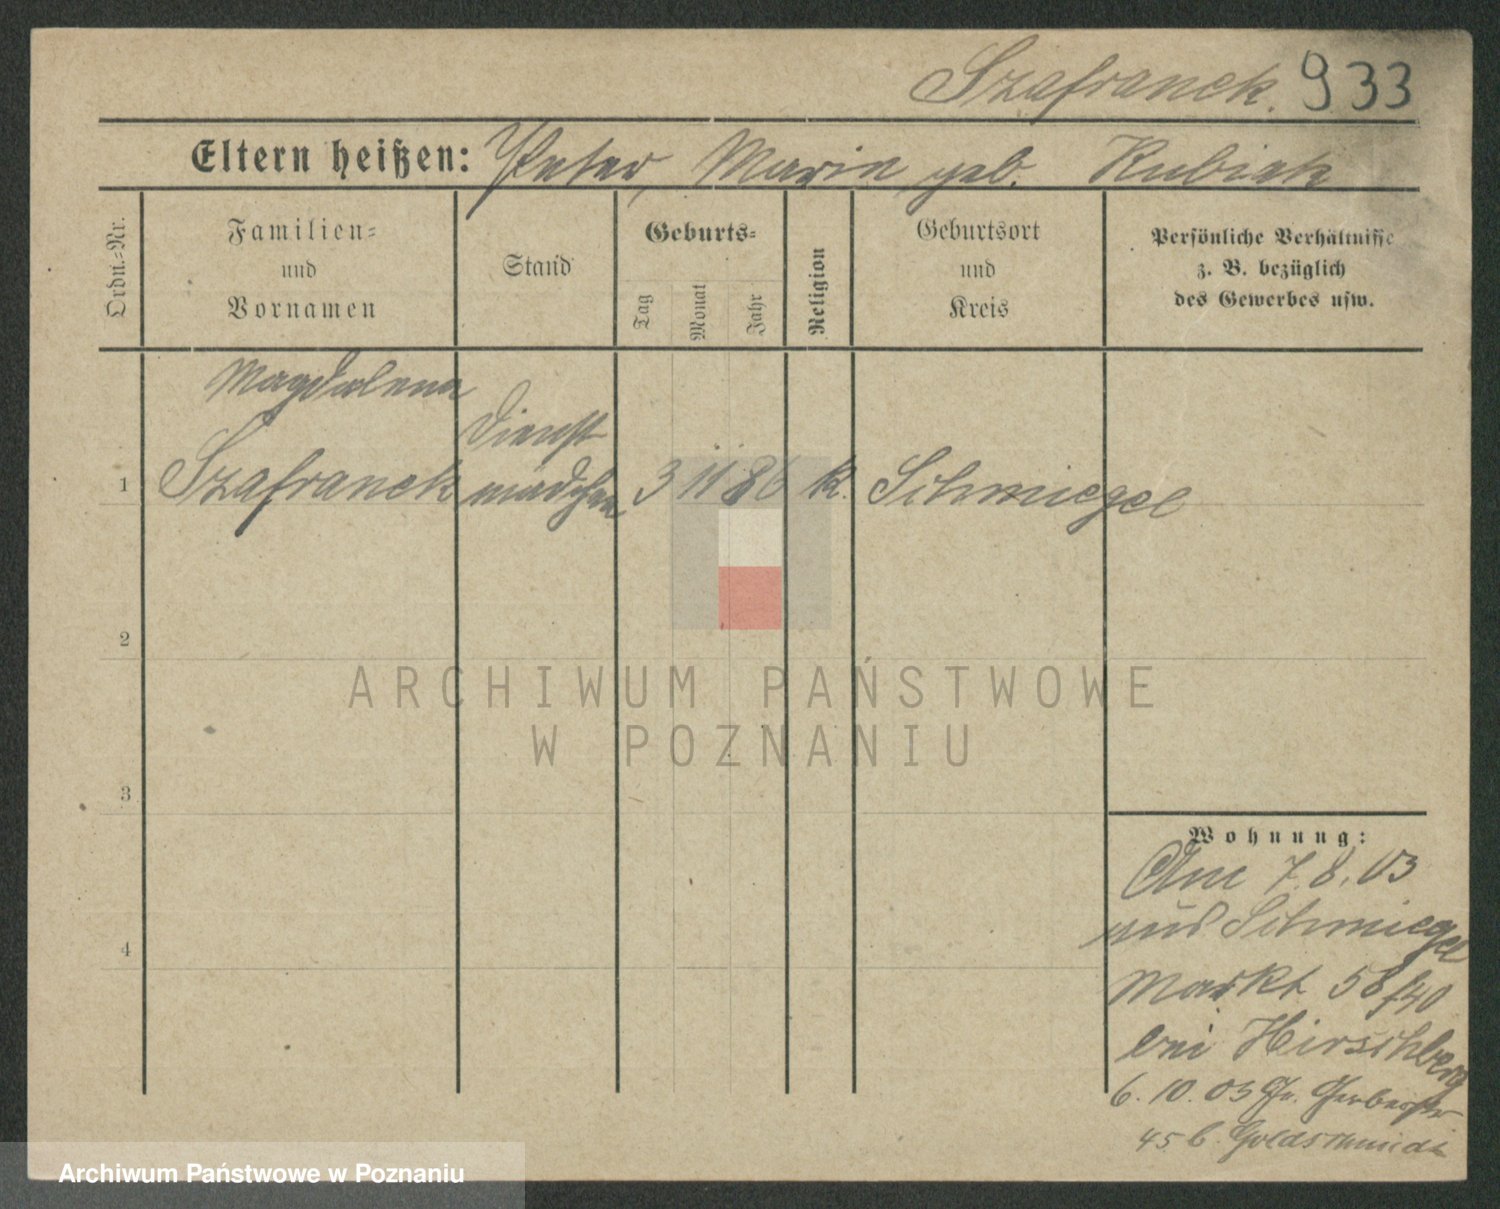 Szafranek. 933
Eltern heißen: Peter, Marie geb. Rubiak
Ordn.-Nr.
Familien-
und
Vornamen
Stand
Geburts-
Tag
Monat
Jahr
Religion
Geburtsort
und
Kreis
Persönliche Verhältnisse
z. B. bezüglich
des Gewerbes usw.
Magdalena
Szafranek
Dienst
mädchen
1
3 11 86 k. Schmiegel
2
3
4
Wohnung:
Am 7.8.03
aus Schmiegel
Markt 58/40
bei Hirschberg
6.10.03 Gr. Gerberstr
45 b. Goldschmidt
ARCHIWUM PAŃSTWOWE
W POZNANIU
Archiwum Państwowe w Poznaniu